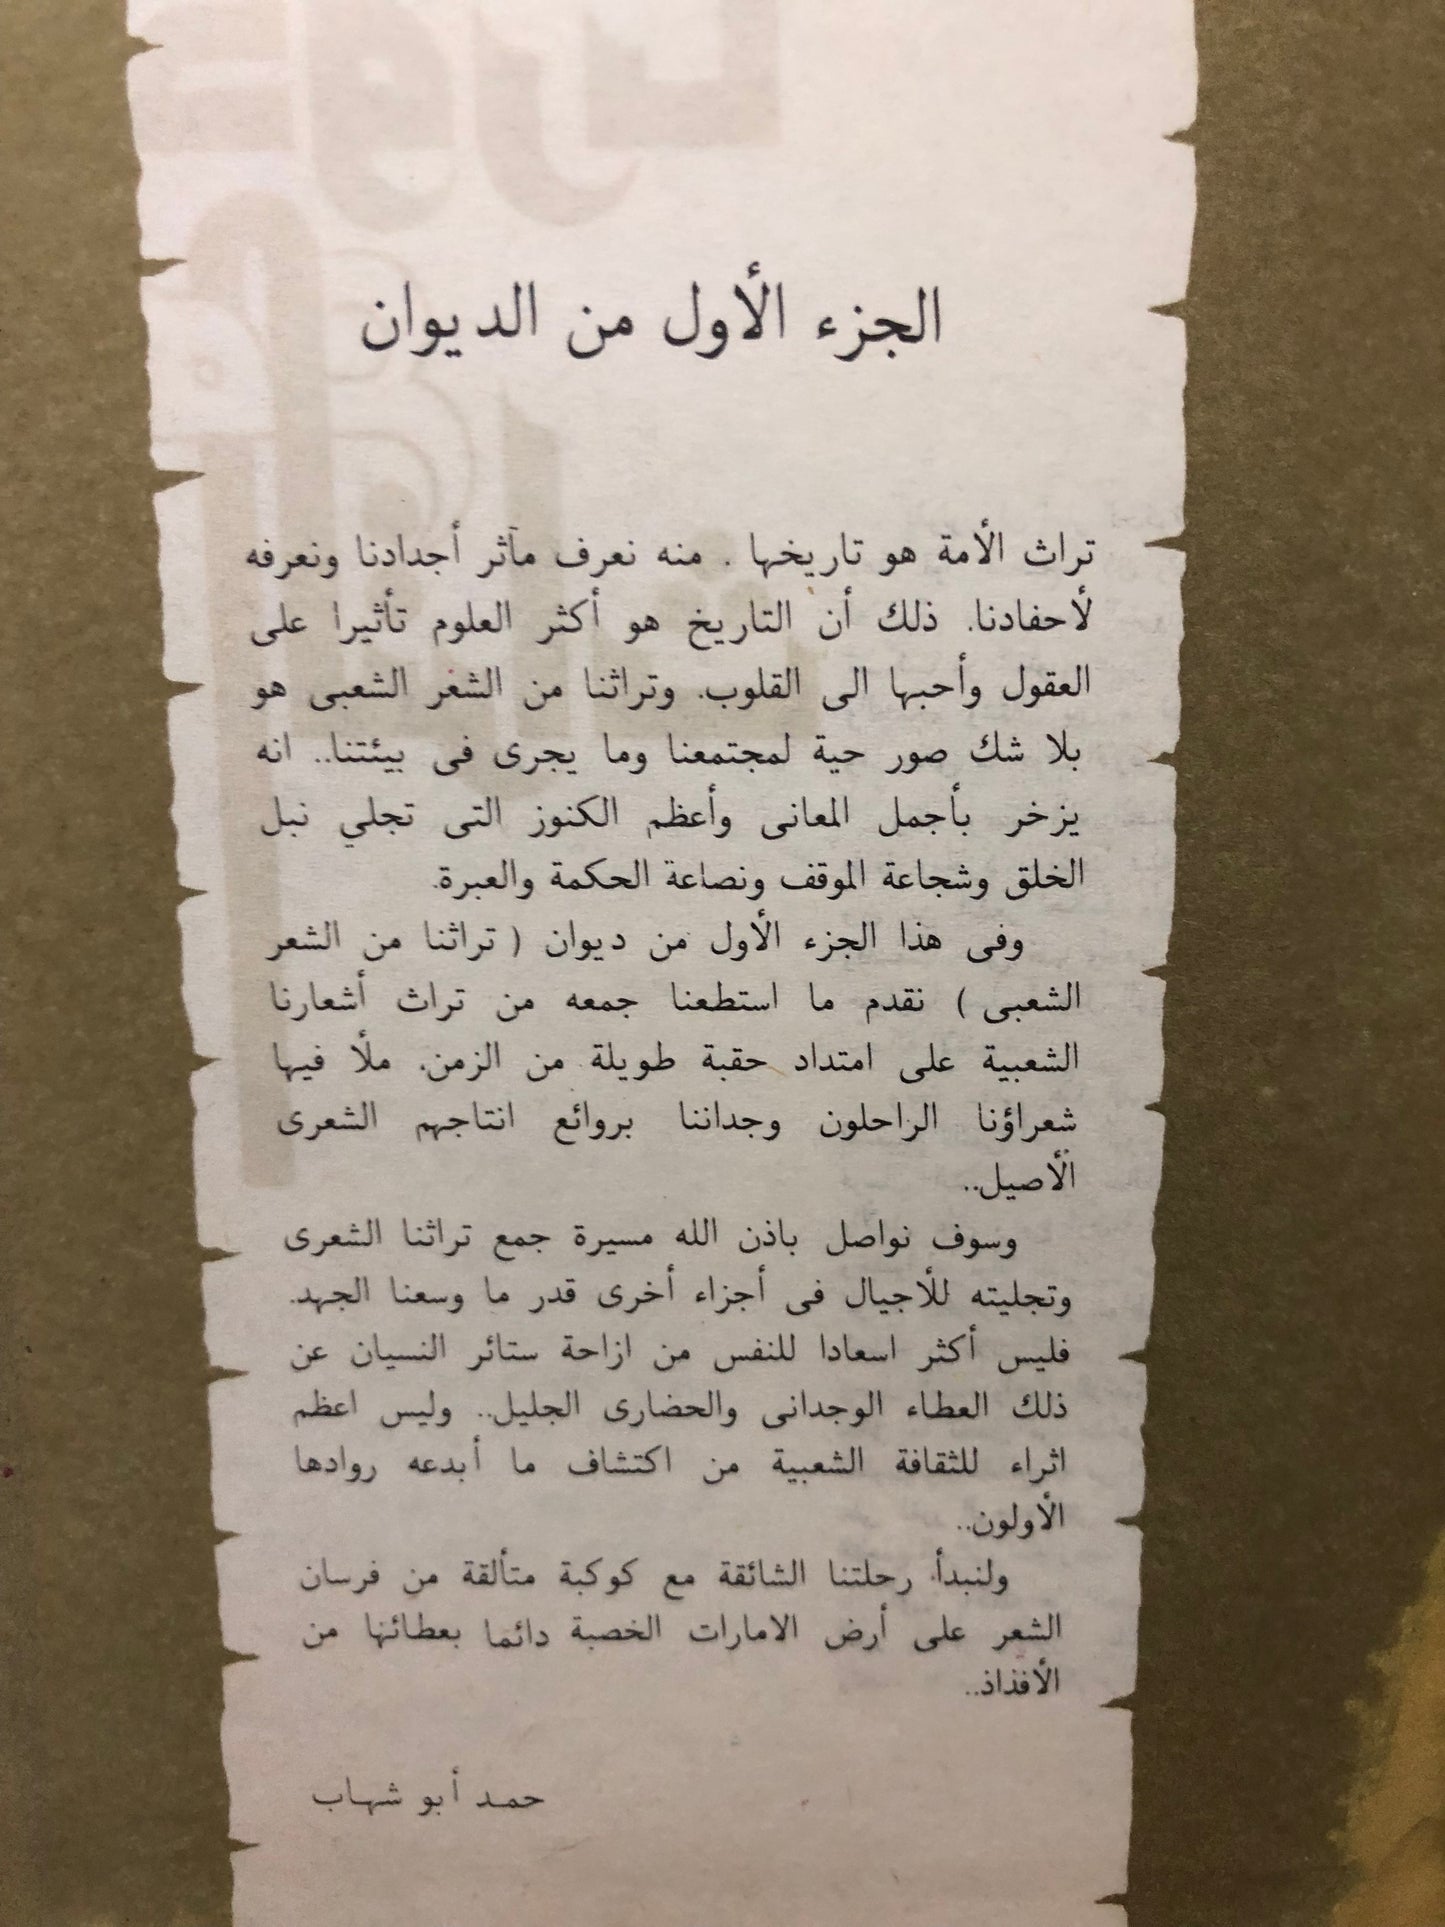 الجزء الأول من الديوان
تراث الأمة هو تاريخها . منه نعرف مآثر أجدادنا ونعرفه
لأحفادنا. ذلك أن التاريخ هو أكثر العلوم تأثيرا على
العقول وأحبها الى القلوب. وتراثنا من الشعر الشعبى هو
بلا شك صور حية لمجتمعنا وما يجرى فى بيئتنا.. انه
يزخر بأجمل المعانى وأعظم الكنوز التى تجلي نبل
الخلق وشجاعة الموقف ونصاعة الحكمة والعبرة.
وفى هذا الجزء الأول من ديوان ( تراثنا من الشعر
الشعبى ) نقدم ما استطعنا جمعه من تراث أشعارنا
الشعبية على امتداد حقبة طويلة من الزمن. ملأ فيها
شعراؤنا الراحلون وجداننا بروائع انتاجهم الشعرى
الأصيل..
وسوف نواصل باذن الله مسيرة جمع تراثنا الشعرى
وتجليته للأجيال فى أجزاء أخرى قدر ما وسعنا الجهد.
فليس أكثر اسعادا للنفس من ازاحة ستائر النسيان عن
ذلك العطاء الوجدانى والحضارى الجليل.. وليس اعظم
اثراء للثقافة الشعبية من اكتشاف ما أبدعه روادها
الأولون..
ولنبدأ رحلتنا الشائقة مع كوكبة متألقة من فرسان
الشعر على أرض الامارات الخصبة دائما بعطائها من
الأفذاذ..
حمد أبو شهاب